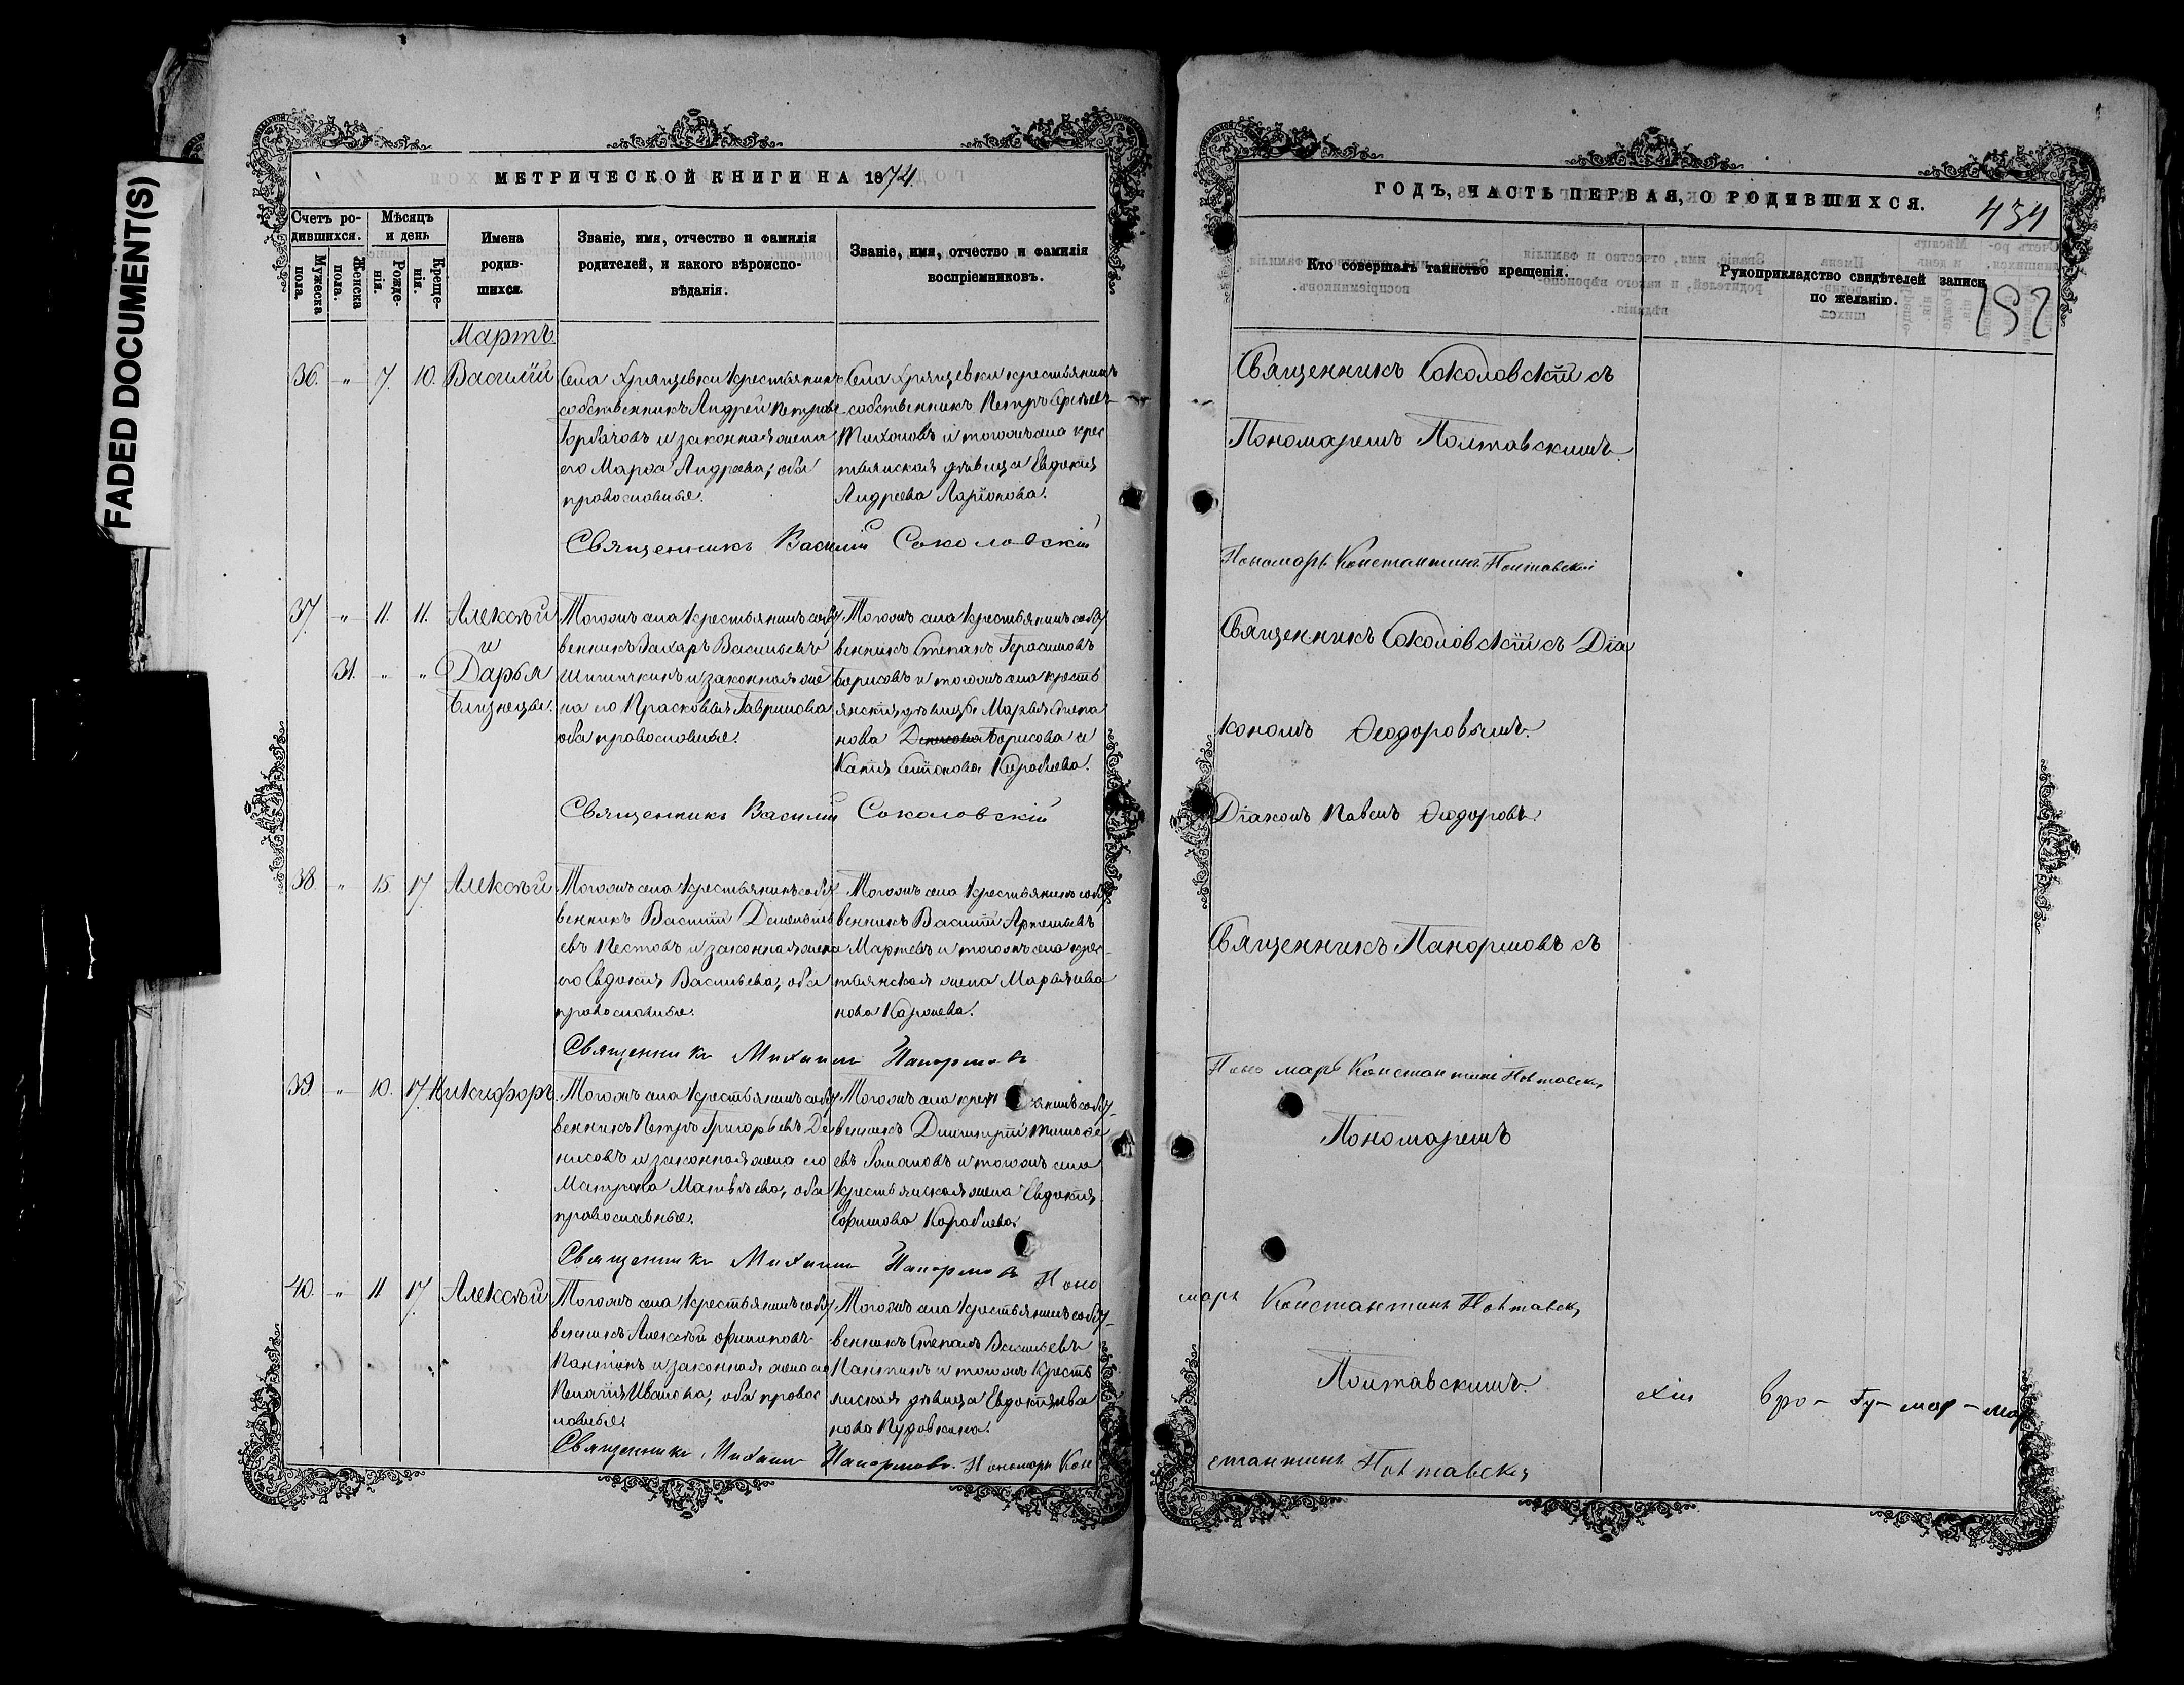 FADED DOCUMENT(S)
МЕТРИЧЕСКОЙ КНИГИ НА 1874
Счетъ родившихся.
Мужеска пола.
Женска пола.
Мѣсяцъ и день
Рожденія.
Крещенія.
Имена родившихся.
Званіе, имя, отчество и фамилія родителей, и какого вѣроисповѣданія.
Званіе, имя, отчество и фамилія воспріемниковъ.
Мартъ
36. " 7. 10. Василій
Села Хрящевки крестьянинъ
собственникъ Андрей Петровъ
Горбачовъ и законная жена
его Марѳа Андреева, оба
православные.
Села Хрящевки крестьянинъ
собственникъ Петръ Сергѣевъ
Тихоновъ и тогожъ села крес
тьянская дѣвица Евдокія
Андреева Ларіонова.
Священникъ Василій Соколовскій
37. " 11. 11. Алексѣй
и
31. " " Дарья
Близнецы.
Тогожъ села крестьянинъ собст
венникъ Захаръ Васильевъ
и законная же
на его Прасковья Гаврилова
оба православные.
Тогожъ села крестьянинъ собст
венникъ Степанъ Герасимовъ
Борисовъ и тогожъ села кресть
янскія дѣвицы Марья Степа
нова Борисова и
Кораблева.
Священникъ Василій Соколовскій
38. " 15. 17 Алексѣй
Тогожъ села крестьянинъ собст
венникъ Василій Дементь
евъ Пестовъ и законная жена
его Евдокія Васильева, оба
православные.
Тогожъ села крестьянинъ собст
венникъ Василій Артемьевъ
и тогожъ села крес
тьянская жена Марья Ива
нова
Священникъ Михаилъ Панормовъ
39. " 10. 17. Никифоръ
Тогожъ села крестьянинъ собст
венникъ Петръ Григорьевъ Де
нисовъ и законная жена его
Матрона Матвѣева, оба
православные.
Тогожъ села крестьянинъ собст
венникъ Димитрій Тимоѳе
евъ Романовъ и тогожъ села
крестьянская жена Евдокія
Ефимова Кораблева.
Священникъ Михаилъ Панормовъ Поно
40. " 11 17. Алексѣй
Тогожъ села крестьянинъ собст
венникъ Алексѣй Филиповъ
Пантинъ и законная жена его
Пелагія Иванова, оба правос
лавные.
Тогожъ села крестьянинъ собст
венникъ Степанъ Васильевъ
Пантинъ и тогожъ кресть
янская дѣвица Евдокія Ива
нова
Священникъ Михаилъ Панормовъ. Пономарь Кон
ГОДЪ, ЧАСТЬ ПЕРВАЯ, О РОДИВШИХСЯ.
434
192
Кто совершалъ таинство крещенія.
Рукоприкладство свидѣтелей записи по желанію.
Священникъ Соколовскій съ
Пономаремъ Полтавскимъ.
Пономарь Константинъ Полтавскій
Священникъ Соколовскій съ Діа
кономъ Ѳеодоровымъ.
Діаконъ Павелъ Ѳеодоровъ.
Священникъ Панормовъ съ
Пономарь Константинъ Полтавскій
Пономаремъ
марь Константинъ Полтавскій
Полтавскимъ.
стантинъ Полтавскій